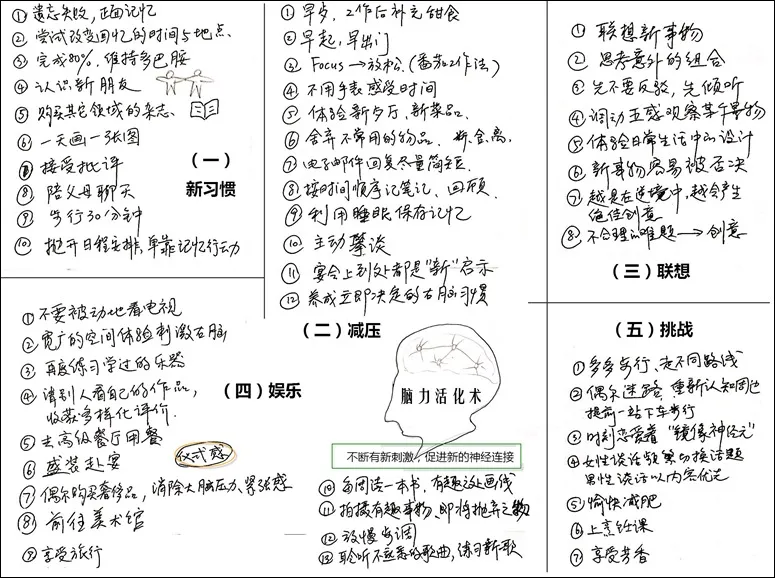 ①遗忘失败，正面记忆
②尝试改变回忆的时间与地点.
③完成80%，维持多巴胺
④认识新朋友
⑤购买其它领域的杂志.
⑥一天画一张图
⑦接受批评
⑧陪父母聊天
⑨步行30分钟
⑩抛开日程安排,单靠记忆行动
（一）
新习惯
①早歺，工作后补充甜食
②早起，早出门
③Focus→放松（番茄工作法）
④不用手表感受时间
⑤体验新歺厅、新菜品.
⑥舍弃不常用的物品. 断.舍.离.
⑦电子邮件回复尽量简短.
⑧按时间顺序记笔记、回顾.
⑨利用睡眠保存记忆
⑩主动攀谈
⑪宴会上到处都是“新”启示
⑫养成立即决定的右脑习惯
（二）减压
①联想新事物
②思考意外的组合
③先不要反驳，先倾听
④调动五感观察某个事物
⑤体会日常生活中的设计
⑥新事物容易被否决
⑦越是在逆境中，越会产生
绝佳创意
⑧不合理的难题→创意
（三）联想
①不要被动地看电视
②宽广的空间体验刺激右脑
③再度练习学过的乐器
④请别人看自己的作品，
收获多样化评价.
⑤去高级餐厅用餐
⑥盛装赴宴
仪式感
⑦偶尔购买奢侈品，消除大脑压力、紧张感
⑧前往美术馆
⑨享受旅行
（四）娱乐
脑力活化术
不断有新刺激，促进新的神经连接
⑩每周读一本书，有趣这上画线
⑪拍摄有趣事物、即将抛弃之物
⑫放慢步调
⑬聆听不熟悉的歌曲，练习新歌
（五）挑战
①多多步行、走不同路线
②偶尔迷路，重新认知周边
提前一站下车步行
③时刻恋爱着“镜像神经元”
④女性谈话频繁切换话题
男性谈话以内容优先
⑤愉快减肥
⑥上烹饪课
⑦享受芳香